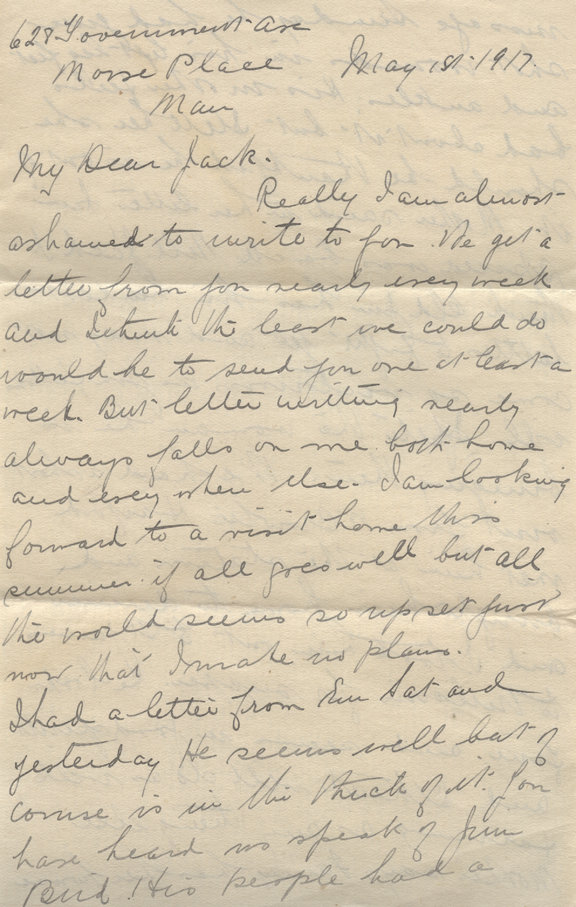 628 Government Ave
Morse Place May 1st 1917.
Man
My Dear Jack.
Really I am almost
ashamed to write to you. We get a
letter from you nearly every week
and I think the least we could do
would be to send you one at least a
week. But letter writing nearly
always falls on me both home
and every where else. I am looking
forward to a visit home this
summer if all goes well but all
the world seems so upset just
now that I make no plans.
I had a letter from Em Sat and
yesterday He seems well but of
course is in the thick of it. You
have heard us speak of Jim
Bird. His people had a